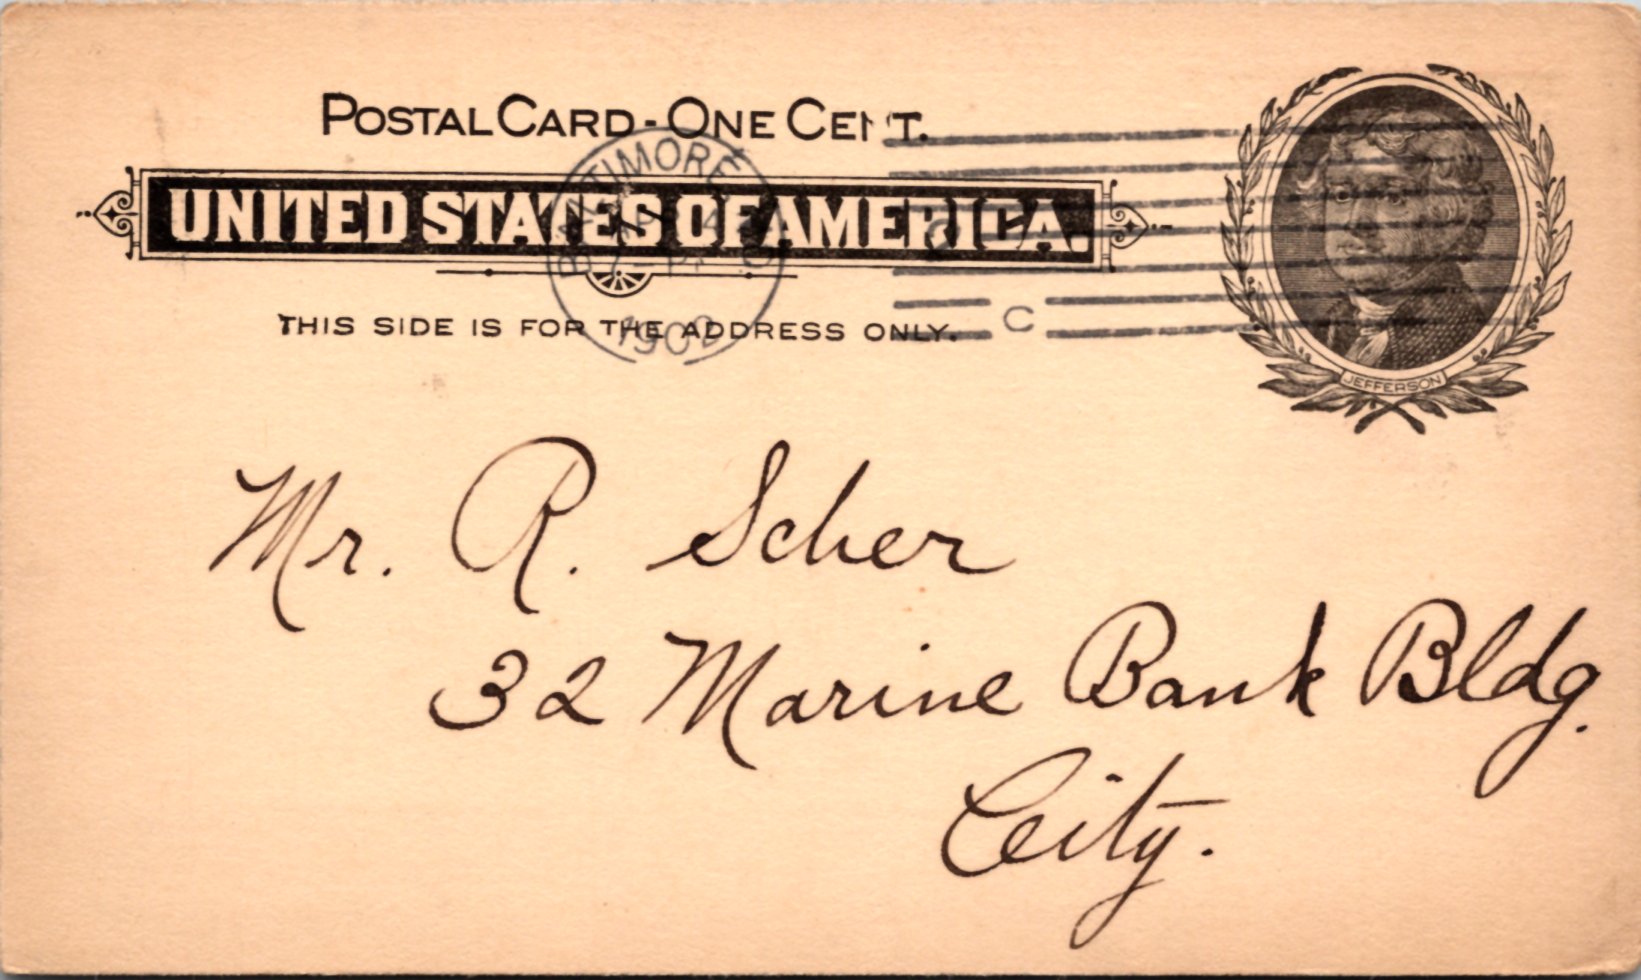 POSTAL CARD - ONE CENT.
UNITED STATES OF AMERICA.
THIS SIDE IS FOR THE ADDRESS ONLY.
BALTIMORE
1902
C
JEFFERSON
Mr. R. Scher
32 Marine Bank Bldg.
City.